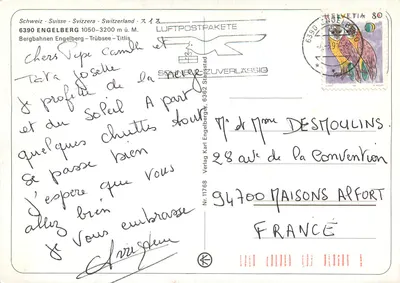 Schweiz - Suisse - Svizzera - Switzerland - スイス
6390 ENGELBERG 1050-3200 m ü. M.
Bergbahnen Engelberg - Trübsee - Titlis
Chers Pepe Camille et
Tata Josette
je profite de la neige
et du Soleil A part
quelques chuttes tout
se passe bien
J'espère que vous
allez bien
je vous embrasse
LUFTPOSTPAKETE
ZUVERLÄSSIG
6390
HELVETIA 80
Verlag Karl Engelberger, 6362 Stansstad
Nr. 11768
Mr et Mme DESMOULINS
28 ave de la CONVENTION
94700 MAISONS ALFORT
FRANCE